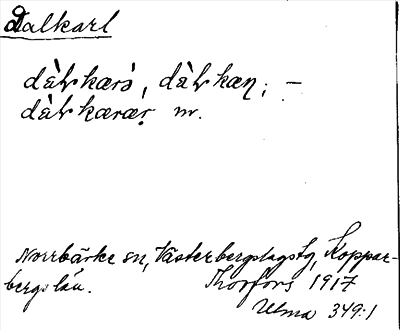 Dalkarl
dàɫkærɔ̀, dàɫkæɳ; –
dàɫkærær. m.
Norrbärke sn, Västerbergslagstg, Koppar-
bergs län. Thorfors 1917
Ulma 349:1